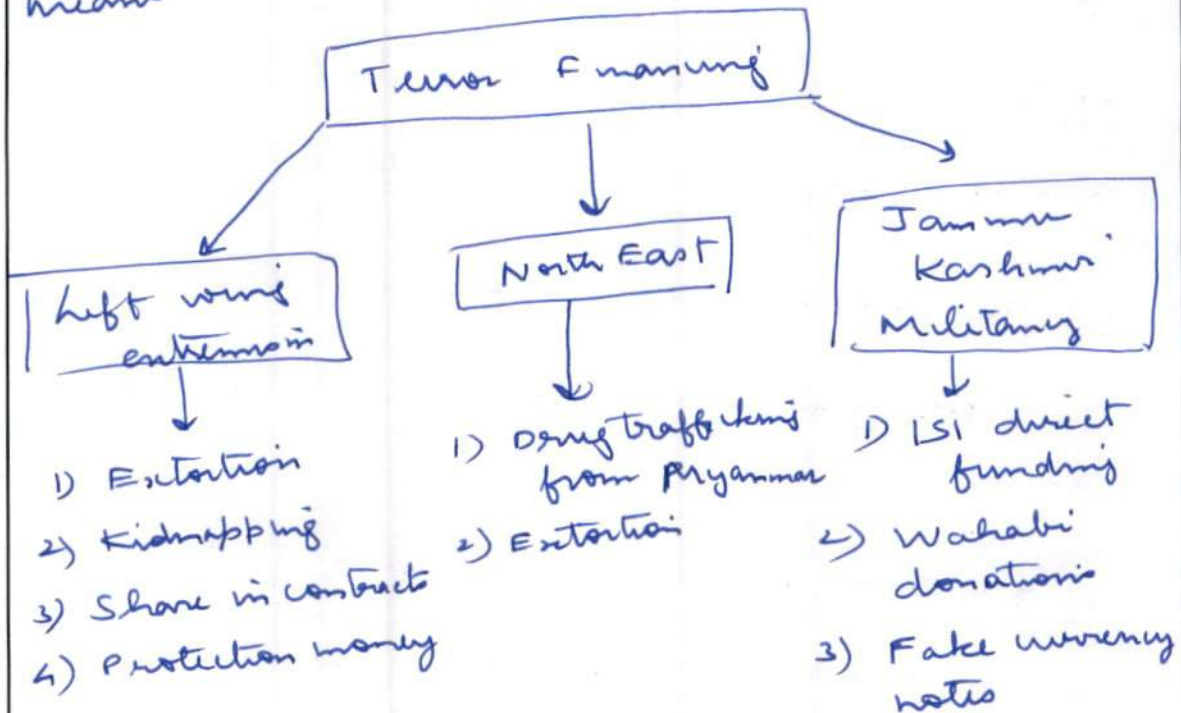 means
Terror Financing
Left wing
extremism
1) Extortion
2) Kidnapping
3) Share in contracts
4) Protection money
North East
1) Drug trafficking
from Myanmar
2) Extortion
Jammu
Kashmir
Militancy
1) ISI direct
funding
2) Wahabi
donations
3) Fake currency
notes